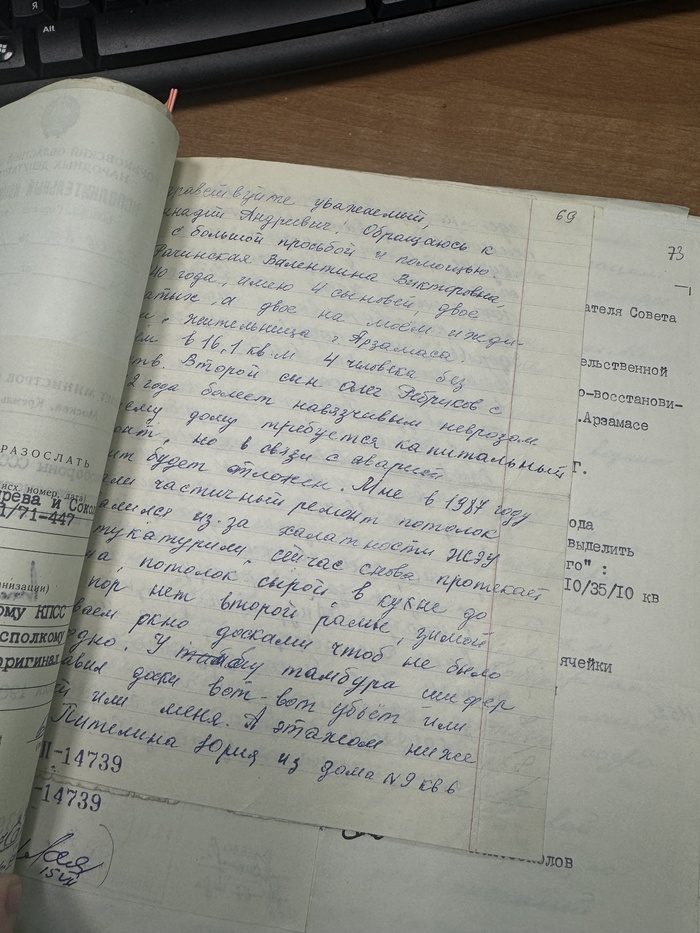 Я
Alt
РАЗОСЛАТЬ
(исх. номер, дата)
рева и Соко
1/71-447
анизации)
ому КПСС
сполкому
оригинал
П-14739
-14739
15 VII
69
равствуйте уважаемый,
ннадий Андреевич. Обращаюсь к
с большой просьбой и помощью.
Рачинская Валентина Викторовна,
40 года, имею 4 сыновей, двое
атых, а двое на моём ижди-
и, жительница г. Арзамаса.
ем в 16,1 кв.м 4 человека без
тв. Второй сын Олег Ребриков с
2 года болеет навязчивым неврозом.
ему дому требуется капитальный
онт, но в связи с аварией
нт будет отложен. Мне в 1987 году
али частичный ремонт потолок
алился из-за халатности ЖЭУ
тукатурили, сейчас снова протекает
а, потолок сырой в кухне до
пор нет второй рамы, зимой
ваем окно досками чтоб не было
одно. У тамбура шифер
авил доски вот-вот убьёт или
й или меня. А этажом ниже
Пителина Юрия из дома N9 кв 6
73
ателя Совета
ельственной
о-восстанови-
.Арзамасе
г.
ода
выделить
го" :
10/35/10 кв
ячейки
олов